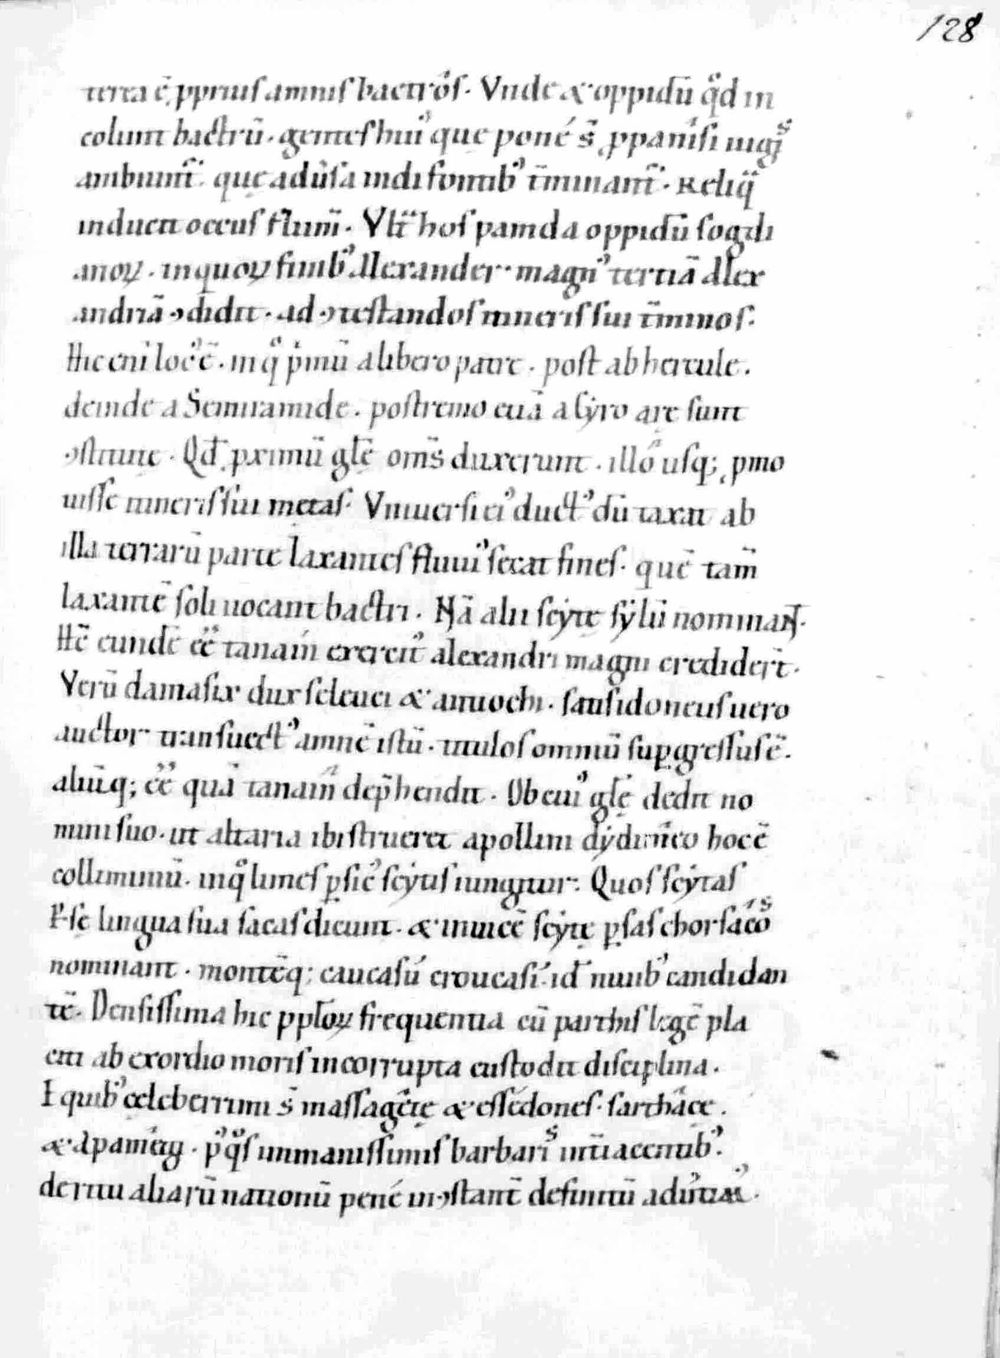 128
terra ē, ꝓprius amnis bactrꝰs. Vnde & oppidū qd̊ in
colunt bactrū. gentes huiꝰ que poné s̄ ꝓpanisi iugis
ambiunt̄. quę aduersa indi fontibꝰ t̄minant̄. Reliq̄
inducit occus flum̄. Vlt̄ hos panda oppidū sogdi
anoꝝ. in quoꝝ finibꝰ Alexander magnꝰ tertiā Alex
andriā ꝯdidit. ad ꝯtestandos itineris sui t̄minos.
Hic eni locꝰ ē. in q̊ pimū a libero patre. post ab hercule.
deinde a Semiramide. postremo etiā a Cẏro arę sunt
ꝯstitutę. Qđ ꝓximū glę̄ om̄s duxerunt. illo usq; ꝓmo
uisse itineris sui metas. Vniuersi eiꝰ ductꝰ dū taxat ab
illa terrarū parte laxantes fluuiꝰ secat fines. quē tam̄
laxantē soli uocant bactri. Nā alii scẏtę sẏlū nominant.
Hc̄ eundē ēē tanaim exercitꝰ alexandri magni credidert̄.
Verū damasix dux seleuci & antiochi. satis idoneus uero
auctor transuectꝰ amnē istū. titulos omniū suꝑgressus ē.
aliūq; ēē quā tanaim dep̄hendit. Ob cuiꝰ glę̄ dedit no
mini suo. ut altaria ibi strueret apollini dẏdimeo hoc ē
collimitiū. in q̊ limes ꝑsicꝰ scẏtis iungitur. Quos scẏtas
Psę lingua sua sacas dicunt. & inuicē scẏtę ꝑsas chorsacos
nominant. montēq; caucasū croucasi. id̄ niuibꝰ candidan
tē. Densissima hic ppl̄oꝝ frequentia cū parthis legē pla
citi ab exordio moris incorrupta custodit disciplina.
E quibꝰ celeberrimi s̄ massagetę & essedones. sarthace.
& Apameig. pꝰ q̊s immanissimis barbaris int̄iacentibꝰ.
de ritu aliarū nationū pené inꝯstant̄ definitū aduertimꝰ.